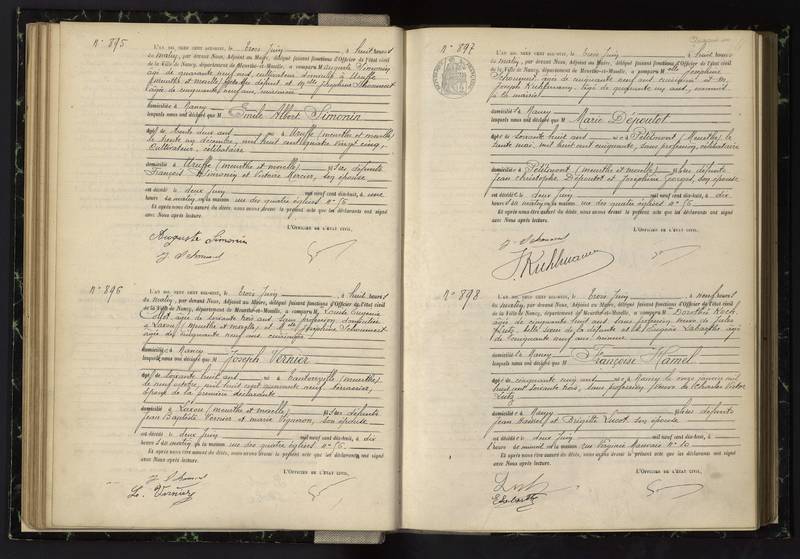 N° 895
L'AN MIL NEUF CENT DIX-HUIT, le trois Juin, à huit heures
du matin, par devant Nous, Adjoint au Maire, délégué faisant fonctions d'Officier de l'état civil
de la Ville de Nancy, département de Meurthe-et-Moselle, a comparu M. Auguste Simonin
âgé de quarante neuf ans, cultivateur, domicilié à Uruffe
(meurthe et moselle), du défunt et Mlle Joséphine
âgée de cinquante neuf ans,
domiciliée à Nancy
lesquels nous ont déclaré que M. Emile Albert Simonin
âgé de trente deux ans né à Uruffe (meurthe et moselle)
le trente un décembre, mil huit cent quatre vingt cinq,
cultivateur, célibataire
domicilié à Uruffe (meurthe et moselle) fils des défunts
François Simonin et Victoire Mercier, son épouse
est décédé le deux Juin mil neuf cent dix-huit, à une
heure du matin, en la maison rue des quatre églises n° 15
Et après nous être assuré du décès, nous avons dressé le présent acte que les déclarants ont signé
avec Nous après lecture.
L'OFFICIER DE L'ÉTAT CIVIL,
Auguste Simonin
N° 896
L'AN MIL NEUF CENT DIX-HUIT, le trois Juin, à huit heures
du matin, par devant Nous, Adjoint au Maire, délégué faisant fonctions d'Officier de l'état civil
de la Ville de Nancy, département de Meurthe-et-Moselle, a comparu M. Louise Eugénie
âgée de soixante trois ans, sans profession, domiciliée
à Laxou (Meurthe et moselle) et Mlle Joséphine
âgée de cinquante neuf ans, cuisinière
domiciliée à Nancy
lesquels nous ont déclaré que M. Joseph Vernier
âgé de soixante huit ans né à (meurthe)
le neuf octobre, mil huit cent quarante neuf, terrassier,
époux de la première déclarante
domicilié à Laxou (meurthe et moselle) fils des défunts
Jean Baptiste Vernier et Marie Vigneron, son épouse
est décédé le deux Juin mil neuf cent dix-huit, à dix
heures du matin, en la maison rue des quatre églises n° 15
Et après nous être assuré du décès, nous avons dressé le présent acte que les déclarants ont signé
avec Nous après lecture.
L'OFFICIER DE L'ÉTAT CIVIL,
Vernier
N° 897
L'AN MIL NEUF CENT DIX-HUIT, le trois Juin, à huit heures
du matin, par devant Nous, Adjoint au Maire, délégué faisant fonctions d'Officier de l'état civil
de la Ville de Nancy, département de Meurthe-et-Moselle, a comparu Mlle Joséphine
âgée de cinquante neuf ans, cuisinière et M.
Joseph Kuhlmann, âgé de quarante ans,
domiciliés à Nancy
lesquels nous ont déclaré que M. Marie Dépoutot
âgée de soixante huit ans née à Petitmont (Meurthe) le
trente mai, mil huit cent cinquante, sans profession, célibataire
domiciliée à Petitmont (meurthe et moselle) fille des défunts
Jean Christophe Dépoutot et Joséphine Georges, son épouse
est décédée le deux Juin mil neuf cent dix-huit, à dix
heures du matin, en la maison rue des quatre églises n° 15
Et après nous être assuré du décès, nous avons dressé le présent acte que les déclarants ont signé
avec Nous après lecture.
L'OFFICIER DE L'ÉTAT CIVIL,
J. Kuhlmann
N° 898
L'AN MIL NEUF CENT DIX-HUIT, le trois Juin, à neuf heures
du matin, par devant Nous, Adjoint au Maire, délégué faisant fonctions d'Officier de l'état civil
de la Ville de Nancy, département de Meurthe-et-Moselle, a comparu M. Dorothée Koch
âgée de cinquante huit ans, sans profession, veuve de Jules
Lutz, belle soeur de la défunte et M. Eugène Labarthe âgé
de cinquante neuf ans,
domiciliés à Nancy
lesquels nous ont déclaré que M. Françoise Hamel
âgée de cinquante cinq ans née à Nancy le onze janvier mil
huit cent soixante trois, sans profession, veuve de Charles Victor
Lutz
domiciliée à Nancy fille des défunts
Jean Hamel et Brigitte Lucot, son épouse
est décédée le deux Juin mil neuf cent dix-huit, à
heures du matin, en la maison rue Virginie Mauvais n° 10
Et après nous être assuré du décès, nous avons dressé le présent acte que les déclarants ont signé
avec Nous après lecture.
L'OFFICIER DE L'ÉTAT CIVIL,
E Labarthe